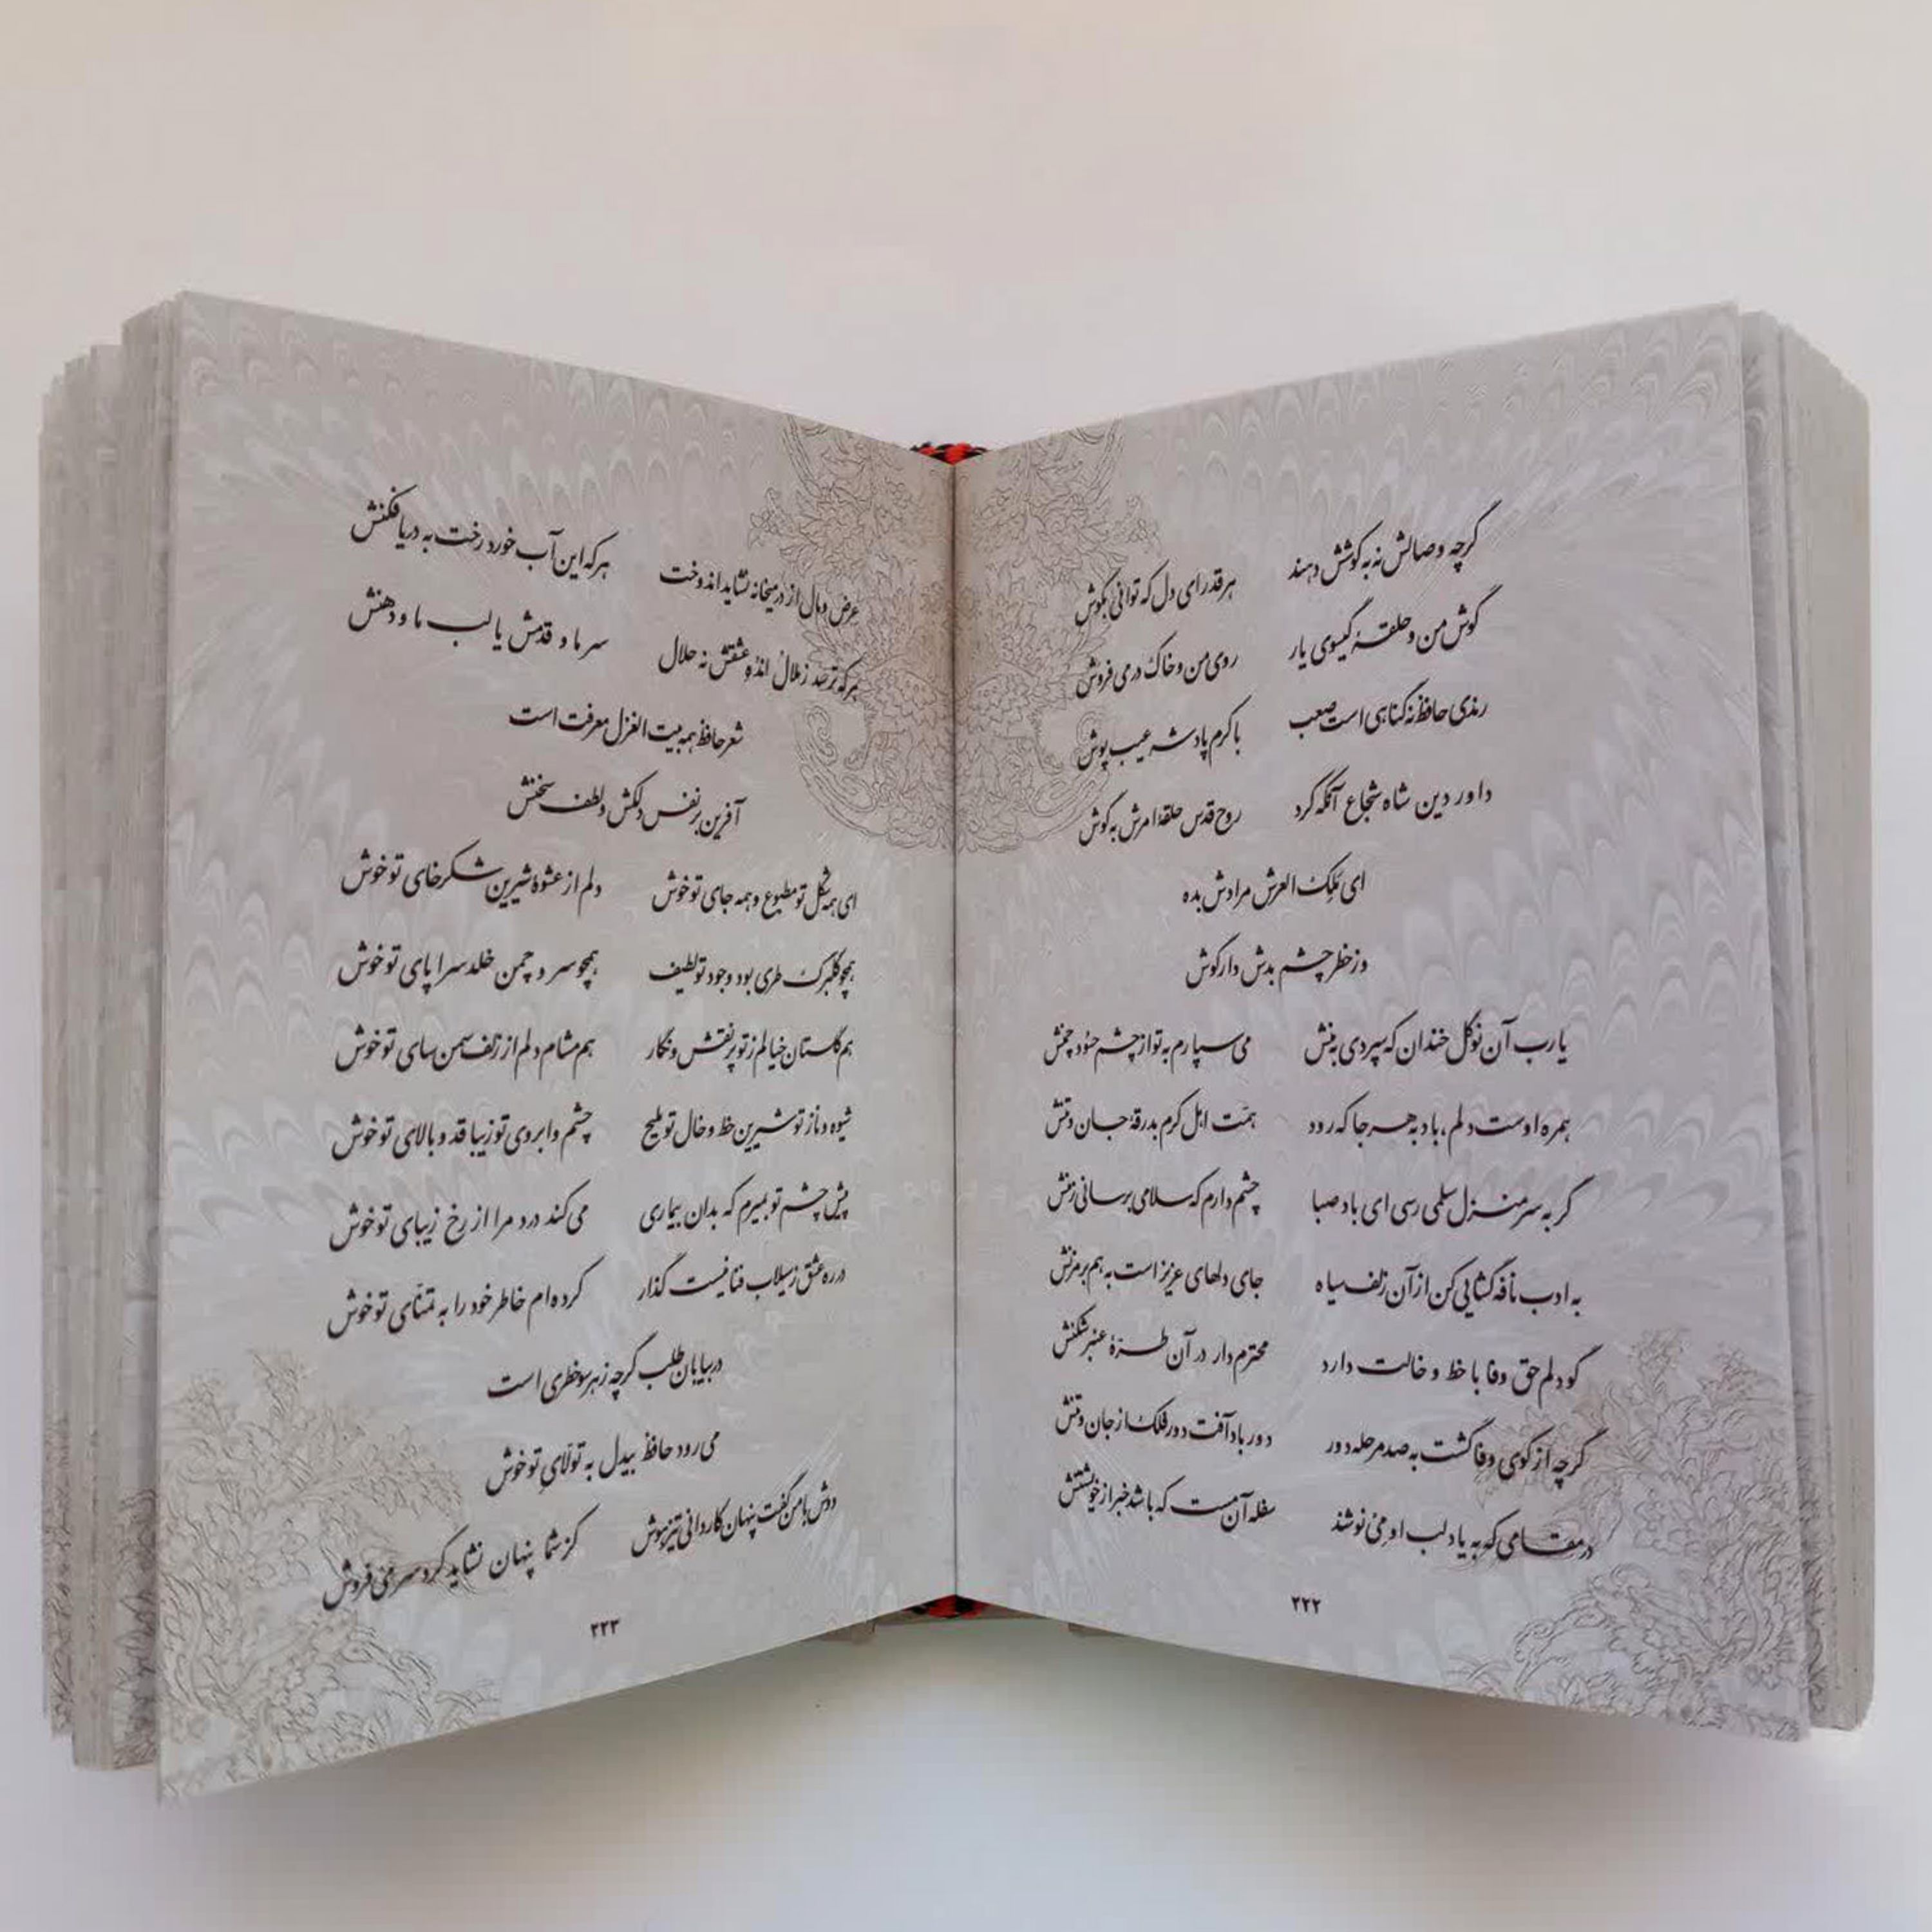 گرچه وصالش نه به کوشش دهند هر قدر ای دل که توانی بکوش
گوش من و حلقهٔ گیسوی یار روی من و خاک در می فروش
رندی حافظ نه گناهی است صعب با کرم پادشه عیب پوش
داور دین شاه شجاع آنکه کرد روح قدس حلقهٔ امرش به گوش
ای مَلِک العرش مرادش بده
وز خطر چشم بدش دار گوش
یارب آن نوگل خندان که سپردی به منش می سپارم به تو از چشم حسود چمنش
همره اوست دلم، باد به هر جا که رود همّت اهل کرم بدرقهٔ جان و تنش
گر به سر منزل سلمی رسی ای باد صبا چشم دارم که سلامی برسانی ز منش
به ادب نافه گشایی کن از آن زلف سیاه جای دلهای عزیز است به هم بر مزنش
گو دلم حق وفا با خط و خالت دارد محترم دار در آن طرّهٔ عنبر شکنش
گرچه از کوی وفا گشت به صد مرحله دور دور باد آفت دور فلک از جان و تنش
در مقامی که به یاد لب او مِی نوشند سفله آن مست که باشد خبر از خویشتنش
۲۲۲
عرض و مال از در میخانه نشاید اندوخت هر که این آب خورد رخت به دریا فکنش
هر که ترسد ز ملال انده عشقش نه حلال سر ما و قدمش یا لب ما و دهنش
شعر حافظ همه بیت الغزل معرفت است
آفرین بر نفس دلکش و لطف سخنش
ای همه شکل تو مطبوع و همه جای تو خوش دلم از عشوهٔ شیرین شکر خای تو خوش
همچو گلبرگ طری بود وجود تو لطیف همچو سرو چمن خلد سراپای تو خوش
هم گلستان خیالم ز تو پر نقش و نگار هم مشام دلم از زلف سمن سای تو خوش
شیوه و ناز تو شیرین خط و خال تو ملیح چشم و ابروی تو زیبا قد و بالای تو خوش
پیش چشم تو بمیرم که بدان بیماری می کند درد مرا از رخ زیبای تو خوش
در ره عشق ز سیلاب فنا نیست گذار کرده ام خاطر خود را به تمنّای تو خوش
در بیابان طلب گرچه ز هر سو خطری است
می رود حافظ بیدل به تولّای تو خوش
دوش با من گفت پنهان کاردانی تیز هوش کز شما پنهان نشاید کرد سرّ می فروش
۲۲۳